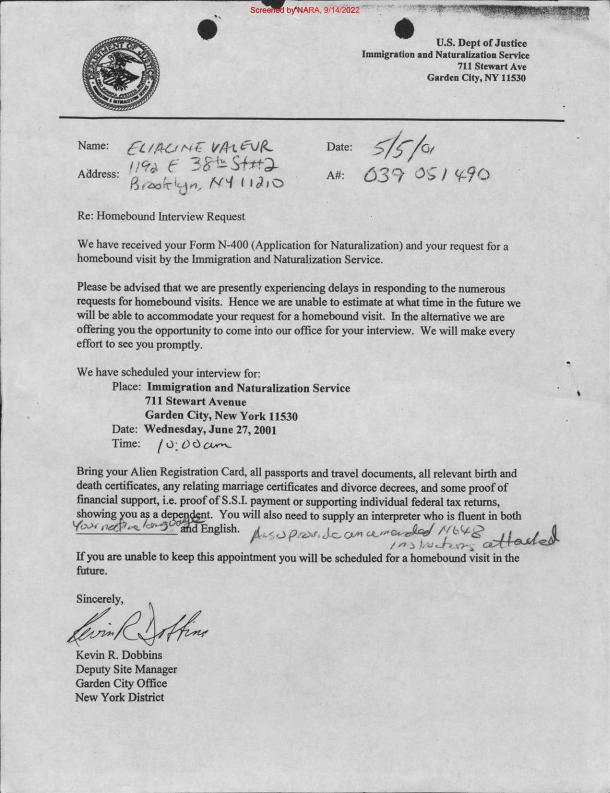 Screened by NARA, 9/14/2022
DEPARTMENT OF JUSTICE
U.S. Dept of Justice
Immigration and Naturalization Service
711 Stewart Ave
Garden City, NY 11530
Name: ELIACINE VALEUR
Date: 5/5/01
Address: 1192 E 38th St #2
Brooklyn, NY 11210
A#: 039 051 490
Re: Homebound Interview Request
We have received your Form N-400 (Application for Naturalization) and your request for a
homebound visit by the Immigration and Naturalization Service.
Please be advised that we are presently experiencing delays in responding to the numerous
requests for homebound visits. Hence we are unable to estimate at what time in the future we
will be able to accommodate your request for a homebound visit. In the alternative we are
offering you the opportunity to come into our office for your interview. We will make every
effort to see you promptly.
We have scheduled your interview for:
Place: Immigration and Naturalization Service
711 Stewart Avenue
Garden City, New York 11530
Date: Wednesday, June 27, 2001
Time: 10:00am
Bring your Alien Registration Card, all passports and travel documents, all relevant birth and
death certificates, any relating marriage certificates and divorce decrees, and some proof of
financial support, i.e. proof of S.S.I. payment or supporting individual federal tax returns,
showing you as a dependent. You will also need to supply an interpreter who is fluent in both
Your native language and English. Also provide an amended N648
instructions attached
If you are unable to keep this appointment you will be scheduled for a homebound visit in the
future.
Sincerely,
Kevin R Dobbins
Kevin R. Dobbins
Deputy Site Manager
Garden City Office
New York District